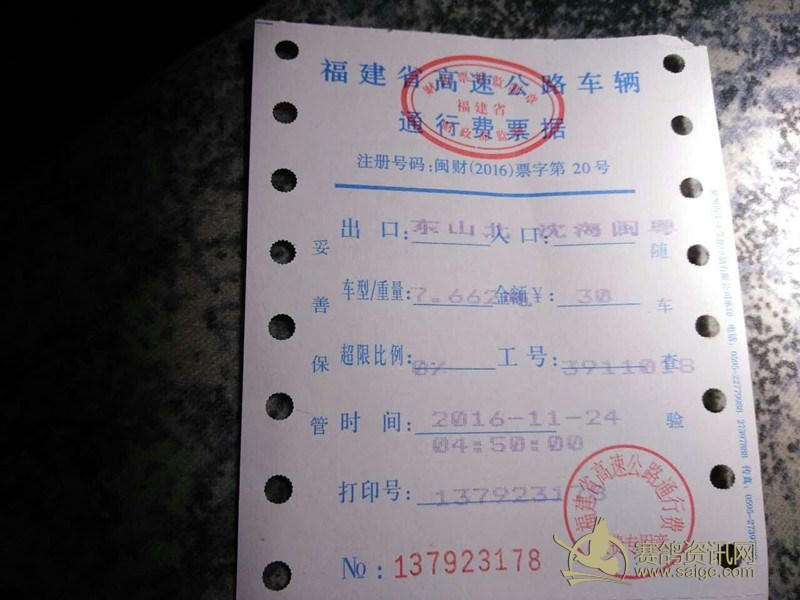 福建省高速公路车辆
通行费票据
福建省
注册号码:闽财(2016)票字第 20 号
出 口: 东山北 入口: 沈海闽粤
车型/重量: 7.662 金额¥: 30
超限比例: 0% 工 号: 3911018
时 间: 2016-11-24
04:50:00
打印号: 137923178
No: 137923178
妥善保管
随车查验
福建省高速公路通行费
专用章
赛鸽资讯网
www.saigc.com